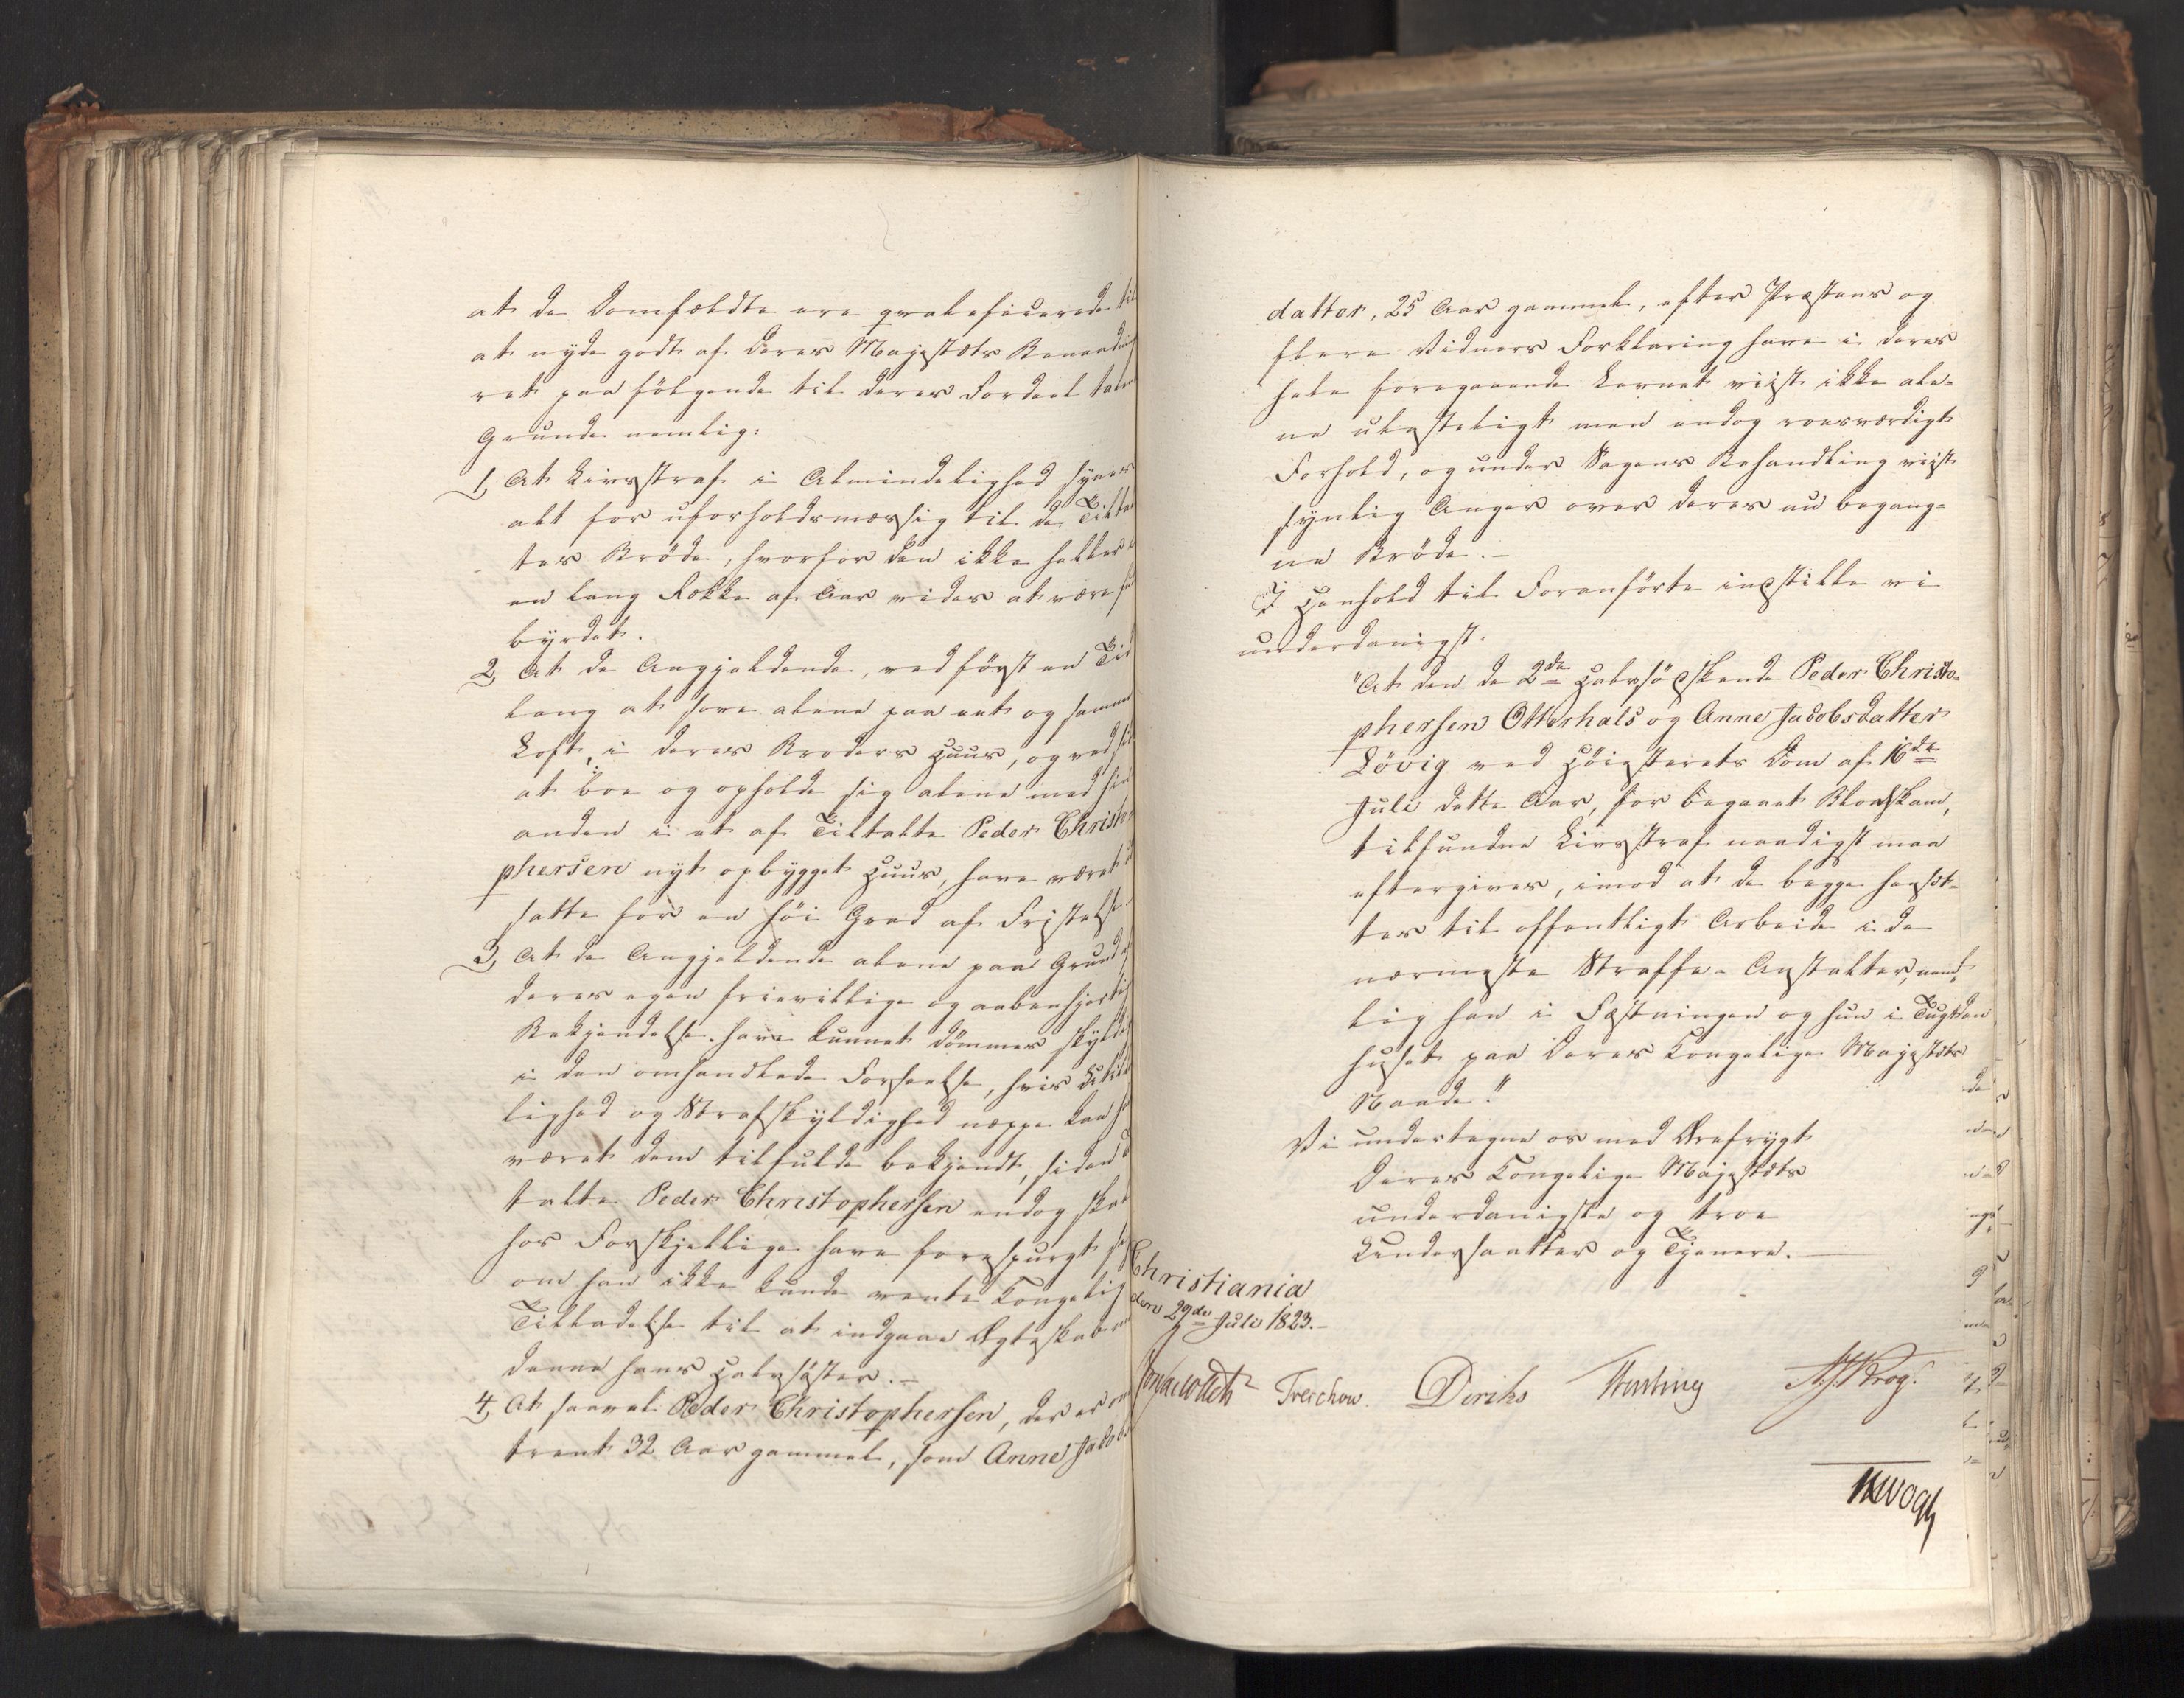 at de Domfældte ere qvalificerede til
at nyde godt af Deres Majestæts Benaadnings
ret paa følgende til deres Fordeel talende
Grunde nemlig:
1, At Livsstraf i Almindelighed synes
alt for uforholdsmæssig til de Tiltal
tes Bröde, hvorfor den ikke heller i
en lang Række af Aar vides at være fuld
byrdet.
2, At de Angjeldende, ved först en Tid
lang at sove alene paa eet og samme
Loft, i deres Broders Huus, og ved siden
at boe og opholde sig alene med hin
anden i et af Tiltalte Peder Christo
phersen nyt opbygget Huus, have været ud
satte for en höi Grad af Fristelse.
3, At de Angjeldende alene paa Grund af
deres egen frievillige og aabenhjertige
Bekjendelse have kunnet dömmes skyldige
i den omhandlede Forseelse, hvis
lighed og Strafskyldighed neppe kan have
været dem tilfulde bekjendt, siden Til
talte Peder Christophersen endog skal
hos Forskjellige have forespurgt sig
om han ikke kunde vente Kongelig
Tilladelse til at indgaae Ægteskab med
denne hans Halvsöster.–
4, At saavel Peder Christophersen, der er om
trent 32 Aar gammel, som Anne Jacobs
datter, 25 Aar gammel, efter Præstens og
flere Vidners Forklaring have i deres
hele foregaaende Levnet viist ikke ale-
ne ulasteligt men endog roesværdigt
Forhold, og under Sagens Behandling viist
synlig Anger over deres nu begang-
ne Bröde.–
I Henhold til Foranförte indstille vi
underdanigst:
"At den de 2de Halvsödskende Peder Christo-
phersen Otterhals og Anne Jacobsdatter
Lövig ved Höiesterets Dom af 16de
Juli dette Aar, for begaaet Blodskam,
tilfundne Livsstraf naadigst maa
eftergives, imod at de begge hensæt-
tes til offentligt Arbeide i de
nærmeste Straffe-Anstalter, nem-
lig han i Fæstningen og hun i Tugt
huset paa Deres Kongelige Majestæts
Naade."
Vi undertegne os med Ærefrygt
Deres Kongelige Majestæts
underdanigste og troe
Undersaatter og Tjenere.
Christiania
den 29de Juli 1823.–
Treschow. Diriks